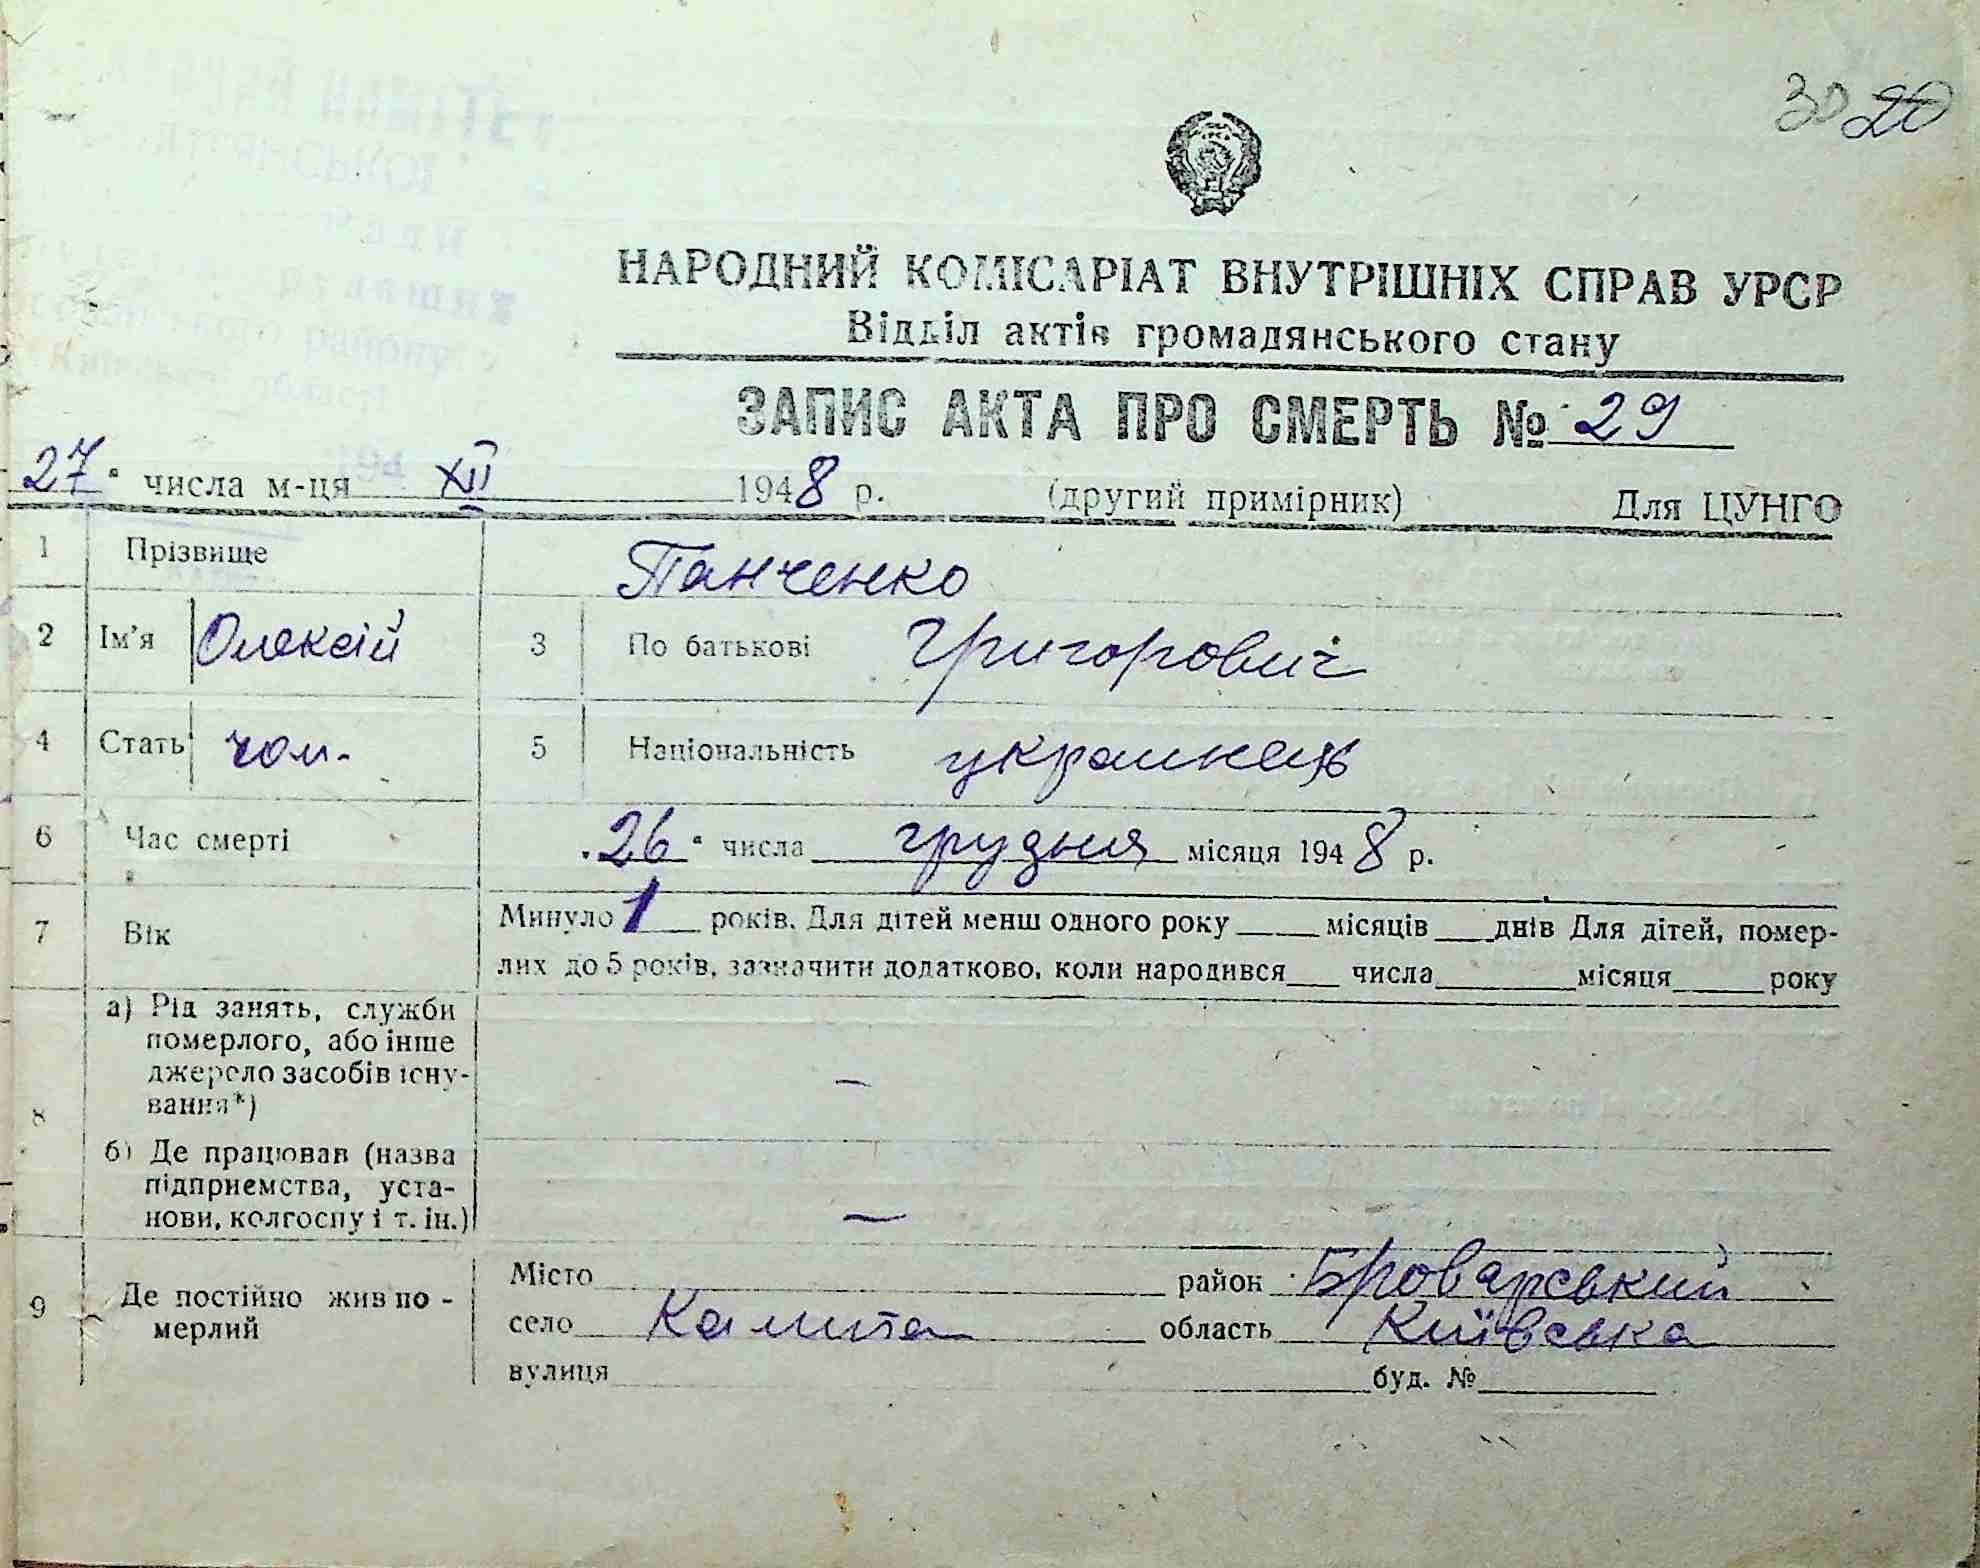 30 20
НАРОДНИЙ КОМІСАРІАТ ВНУТРІШНІХ СПРАВ УРСР
Відділ актів громадянського стану
ЗАПИС АКТА ПРО СМЕРТЬ № 29
27 " числа м-ця XII 1948 р. (другий примірник) Для ЦУНГО
1 Прізвище Панченко
2 Ім'я Олексій 3 По батькові Григорович
4 Стать чол. 5 Національність украінець
6 Час смерті "26" числа грудня місяця 1948 р.
7 Вік Минуло 1 років. Для дітей менш одного року ___ місяців ___ днів Для дітей, помер-
лих до 5 років, зазначити додатково, коли народився ___ числа ___ місяця ___ року
8 а) Рід занять, служби
померлого, або інше
джерело засобів існу-
вання*) —
б) Де працював (назва
підприємства, уста-
нови, колгоспу і т. ін.) —
9 Де постійно жив по-
мерлий
Місто ___ район Броварський
село Калита область Київська
вулиця ___ буд. № ___